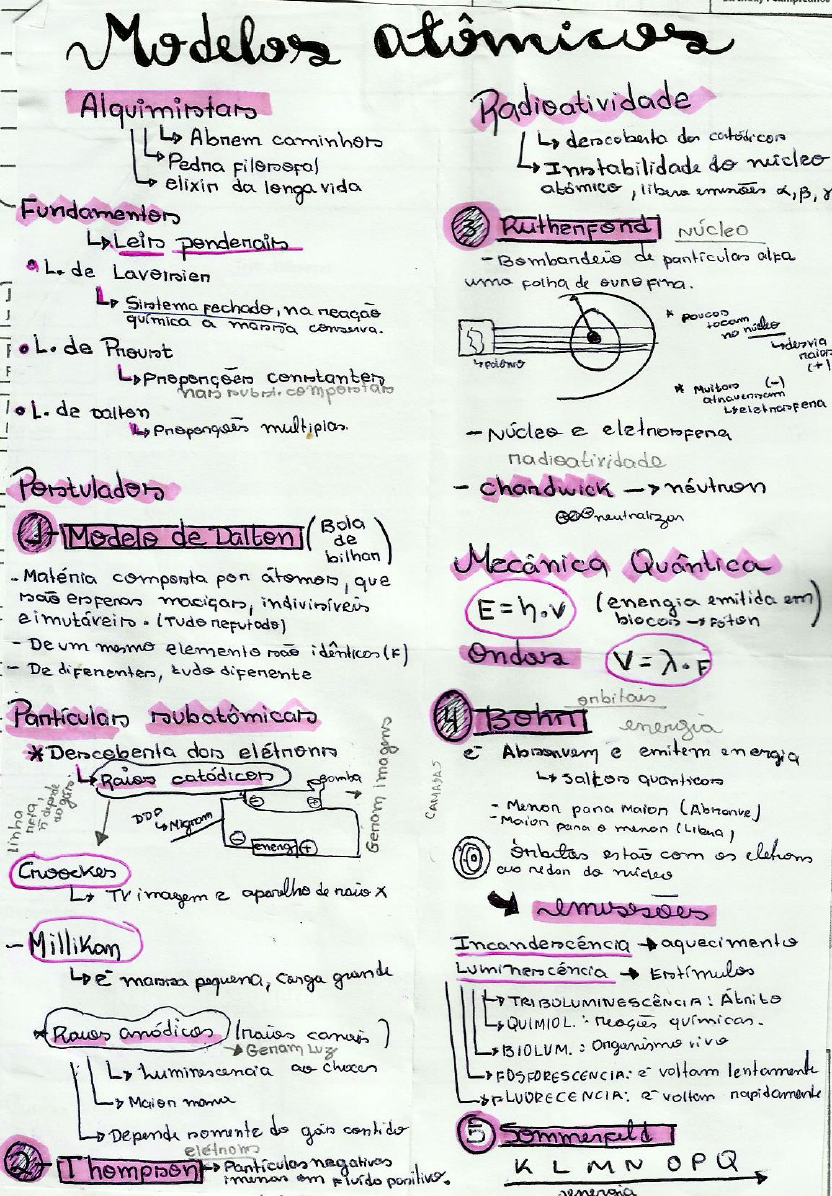 Modelos atômicos
Alquimistas
↳ Abrem caminhos
↳ Pedra filosofal
↳ elixir da longa vida
Fundamentos
↳ Leis ponderais
• L. de Lavoisier
↳ Sistema fechado, na reação
química a massa conserva.
• L. de Proust
↳ Proporções constantes
nas subst. compostas
• L. de Dalton
↳ Proporções multiplas.
Postulados
1 - Modelo de Dalton (Bola
de
bilhar)
- Matéria composta por átomos, que
são esferas maciças, indivisíveis
e imutáveis. (Tudo refutado)
- De um mesmo elemento são idênticos (F)
- De diferentes, tudo diferente
Partículas subatômicas
* Descoberta dos elétrons
↳ Raios catódicos
Linha
reta,
ñ depende
do gás.
DDP
↳ Migram
bomba
Geram imagens
energ
Crookes
↳ TV imagem e aparelho de raio x
- Millikan
↳ é massa pequena, carga grande
* Raios anódicos (raios canais)
→ Geram Luz
↳ Luminescencia ao choca
↳ Maior massa
↳ Depende somente do gás contido
elétrons
2 - Thompson → Partículas negativas
imersas em fluído positivo.
Radioatividade
↳ descoberta dos catódicos
↳ Instabilidade do núcleo
atômico, libera emissões α, β, γ
3 Rutherford núcleo
- Bombardeio de partículas alfa
uma folha de ouro fina.
↳ polônio
* poucos
tocam
no núcleo
↳ desvia
maior
(+)
* Muitas (-)
atravessam
↳ eletrosfera
- Núcleo e eletrosfera
radioatividade
- Chardwick → nêutron
neutralizar
Mecânica Quântica
E = h.v (energia emitida em
blocos → fóton)
Ondas V = λ.F
orbitais
4 Bohr energia
CAMADAS
é Absorvem e emitem energia
↳ saltos quanticos
- Menor para maior (Absorve)
- Maior para o menor (Libera)
órbitas estão com os elétrons
ao redor do núcleo
emissões
Incandescência → aquecimento
Luminescência → Estímulos
↳ TRIBOLUMINESCÊNCIA: Atrito
↳ QUIMIOL.: reações químicas.
↳ BIOLUM.: Organismo vivo
↳ FOSFORESCENCIA: é voltam lentamente
↳ FLUORECENCIA: é voltam rapidamente
5 Sommerfeld
K L M N O P Q
energia